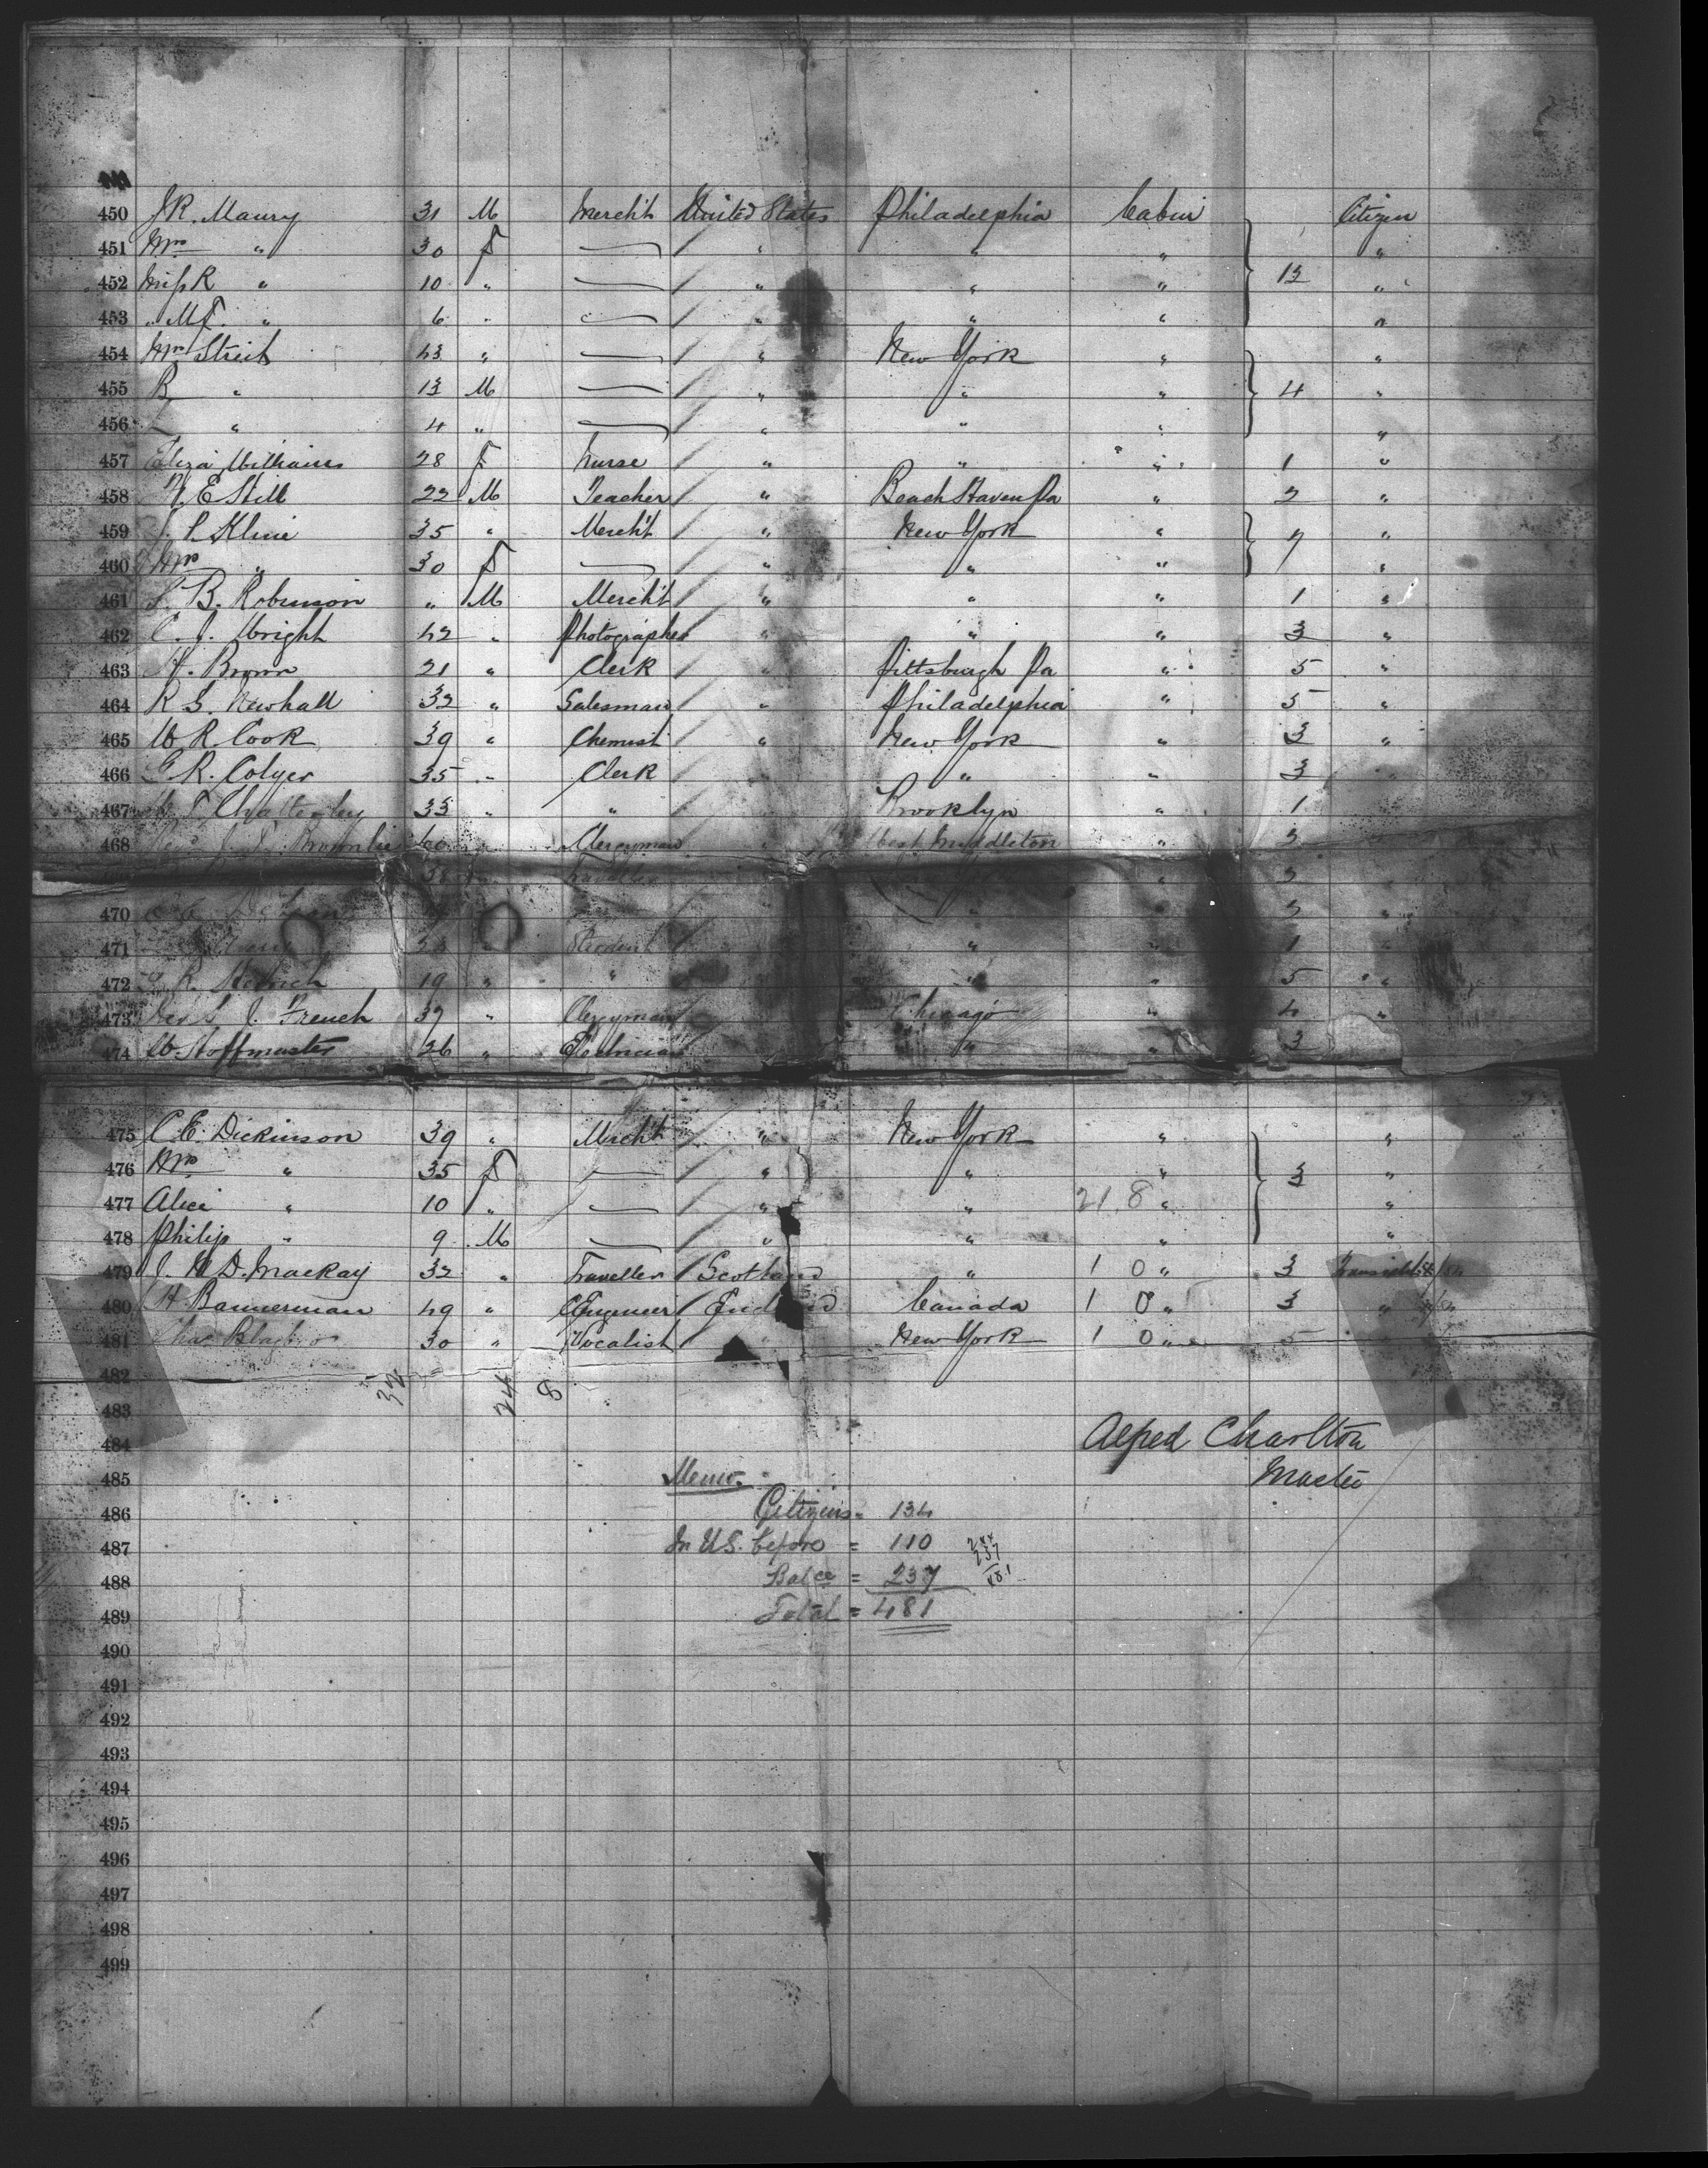 450 J.R. Maury 31 M Mercht United States Philadelphia Cabin Citizen
451 Mrs " 30 F — " " " "
452 Miss R " 10 " — " " " 13 "
453 " M F. " 6 " — " " " "
454 Mrs Streit 43 " — " New York " "
455 R " 13 M — " " " 4 "
456 " 4 " — " " " "
457 Eliza Williams 28 F Nurse " " " 1 "
458 E Still 22 M Teacher " Beach Haven Pa " 2 "
459 Kline 35 " Mercht " New York " "
460 Mrs " 30 F — " " " 7 "
461 S. B. Robinson " M Mercht " " " 1 "
462 C. J. Wright 42 " Photographer " " " 3 "
463 H. Brown 21 " Clerk " Pittsburgh Pa " 5 "
464 R S. Newhall 32 " Salesman " Philadelphia " 5 "
465 W R. Cook 39 " Chemist " New York " 3 "
466 R. Colyer 35 " Clerk " " " 3 "
467 T. Chatterley 33 " " Brooklyn " 1
468 Rev J. Brownlie 40 Clergyman " West Middleton " 3
38 Traveller " "
470 " " " "
471 Student " " 1 "
472 R. 19 " " " " 5 "
473 Rev S J. French 39 " Clergyman Chicago " 4 "
474 W Hoffmaster 26 " Electrician " " 3
475 C. E. Dickinson 39 " Mercht " New York " "
476 Mrs " 35 F — " " " 3 "
477 Alice " 10 " — " " 21 8 " "
478 Philip " 9 M — " " " "
479 J. W D. MacKay 32 " Traveller Scotland " 1 0 " 3
480 H Bannerman 49 " C Engineer England Canada 1 0 " 3 "
481 Chas 30 " Vocalist " New York 1 0 " 5
482
32 24 8
483
484 Alfred Charlton
485 Memo. Master
486 Citizens = 134
487 In U.S. before = 110
488 Balce = 237
489 Total = 481
244
237
481
490
491
492
493
494
495
496
497
498
499